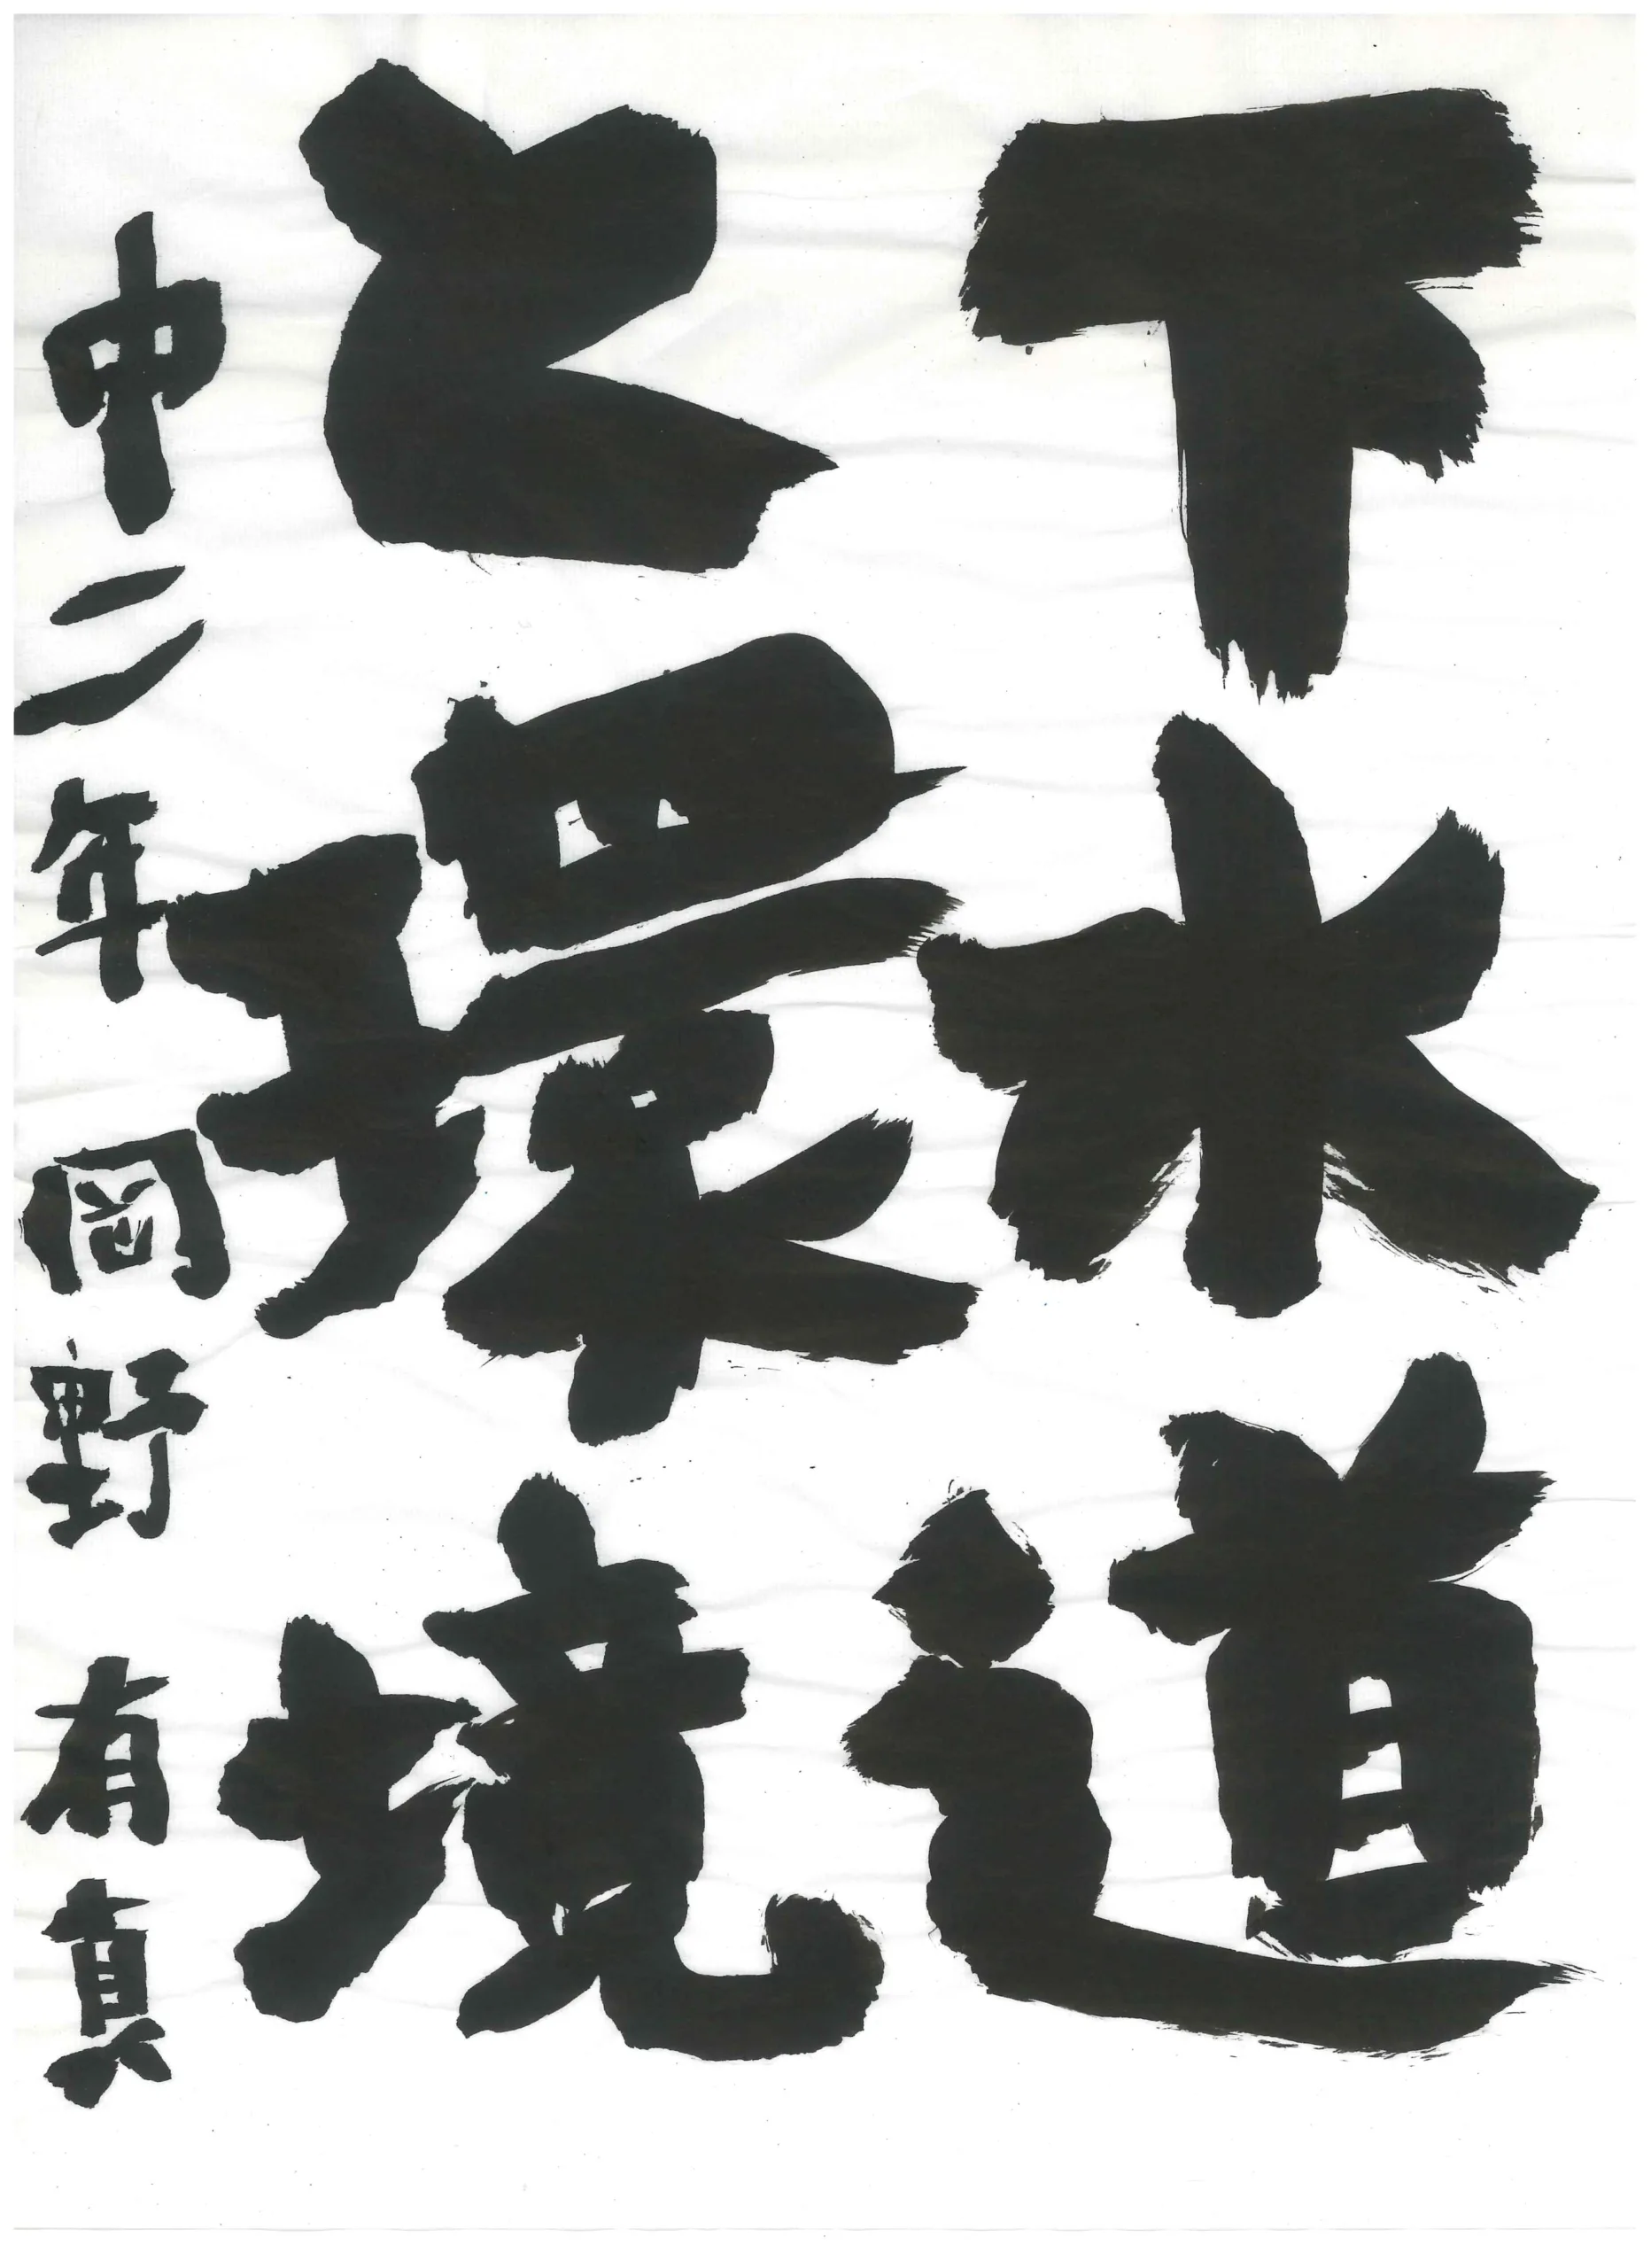 下水道
と環境
中二年 岡野 有真